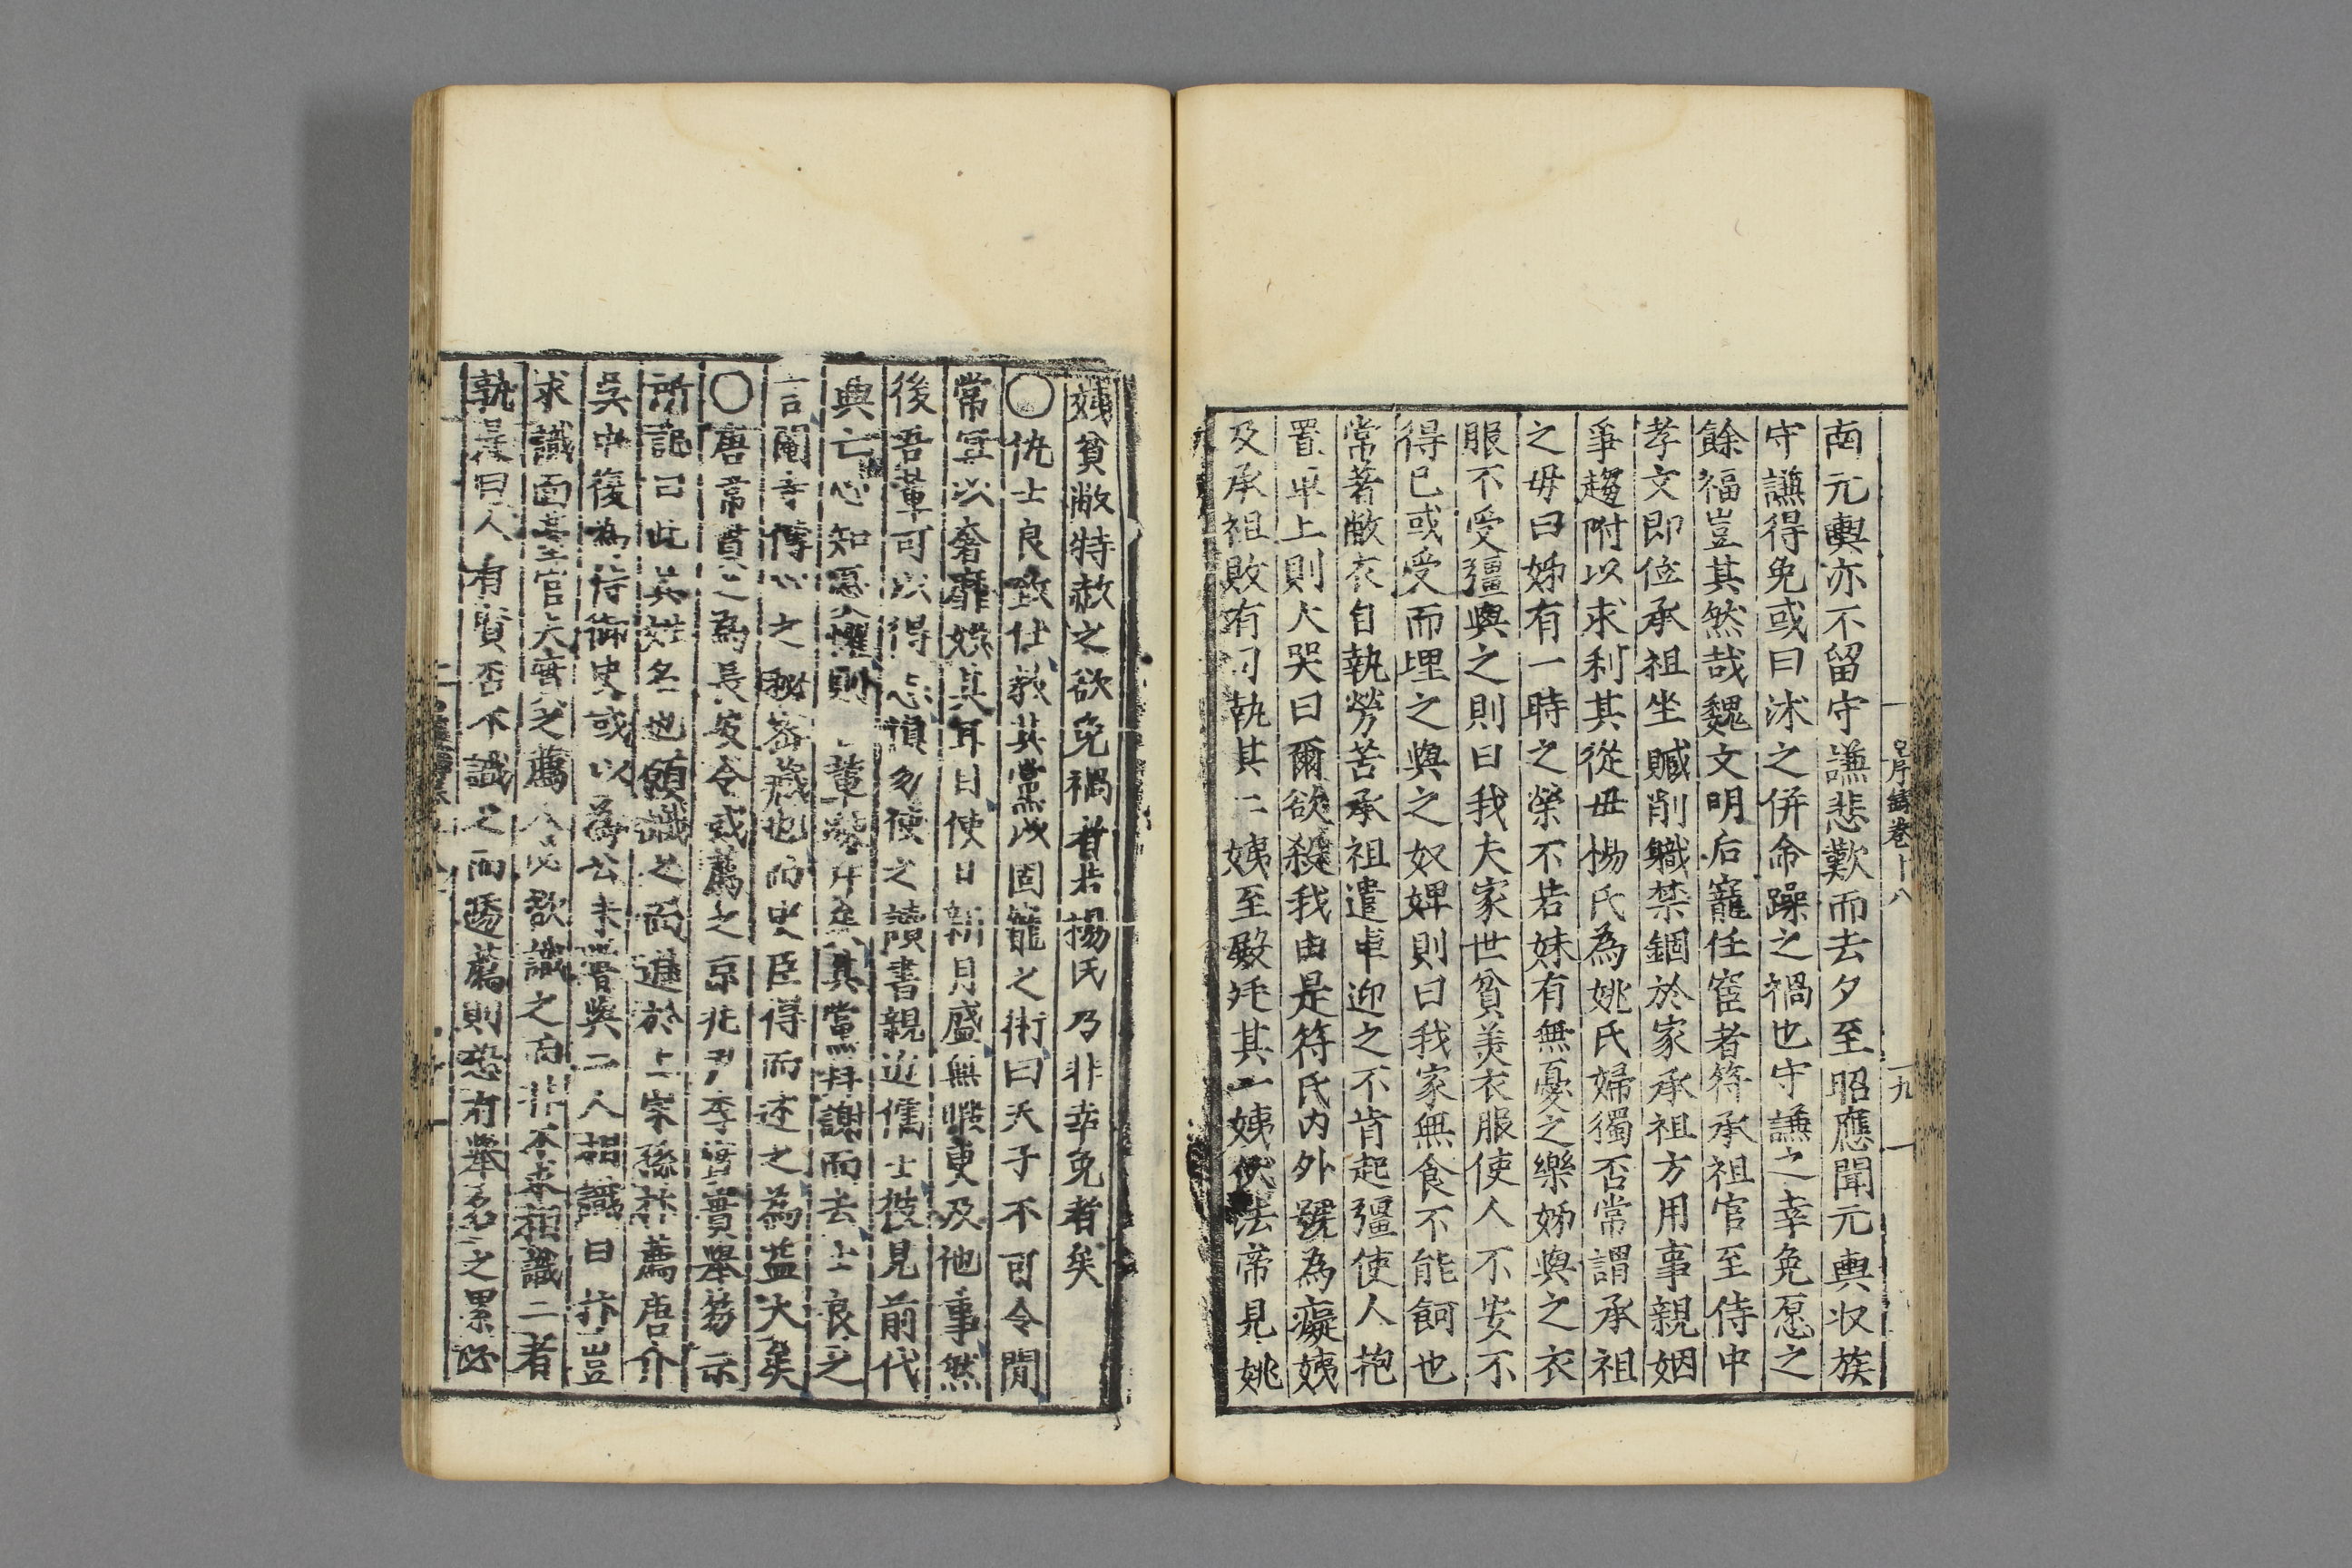 南元輿亦不留守謙悲歎而去夕至昭應聞元輿収族
守謙得免或曰沭之併命躁之禍也守謙之幸免愿之
餘福豈其然哉魏文明后寵任宦者符承祖官至侍中
孝文即位承祖坐贓削職禁錮於家承祖方用事親姻
爭趨附以求利其從母楊氏為姚氏婦獨否常謂承祖
之毋曰姊有一時之榮不若妹有無憂之樂姊與之衣
服不受彊與之則曰我夫家世貧美衣服使人不安不
得已或受而埋之與之奴婢則曰我家無食不能飼也
常著敝衣自執勞苦承祖遣車迎之不肯起彊使人抱
置車上則大哭曰爾欲殺我由是符氏內外號為癡姨
及承祖敗有司執其二姨至殿廷其一姨伏法帝見姚
序錄卷十八
十九
姨貧敝特赦之欲免禍者若揚氏乃非幸免者矣
〇仇士良致仕教其黨以固寵之術曰天子不可令閒
常宜以奢靡娛其耳目使日新月盛無暇更及他事然
後吾輩可以得志愼勿使之讀書親近儒士彼見前代
興亡心知憂懼則 輩踈斥矣其黨拜謝而去士良之
言閹寺傳心之秘密藏也而史臣得而述之為益大矣
〇唐常貫之為長安令或薦之京兆尹李實實舉笏示
所記曰此其姓名也願識之而進於上宋孫抃薦唐介
吳中復為侍御史或以為公未嘗與二人相識曰抃豈
求識面臺官夫實之薦人必欲識之而抃不求相識二者
孰是曰人有賢否不識之而遽薦則恐有舉 之累